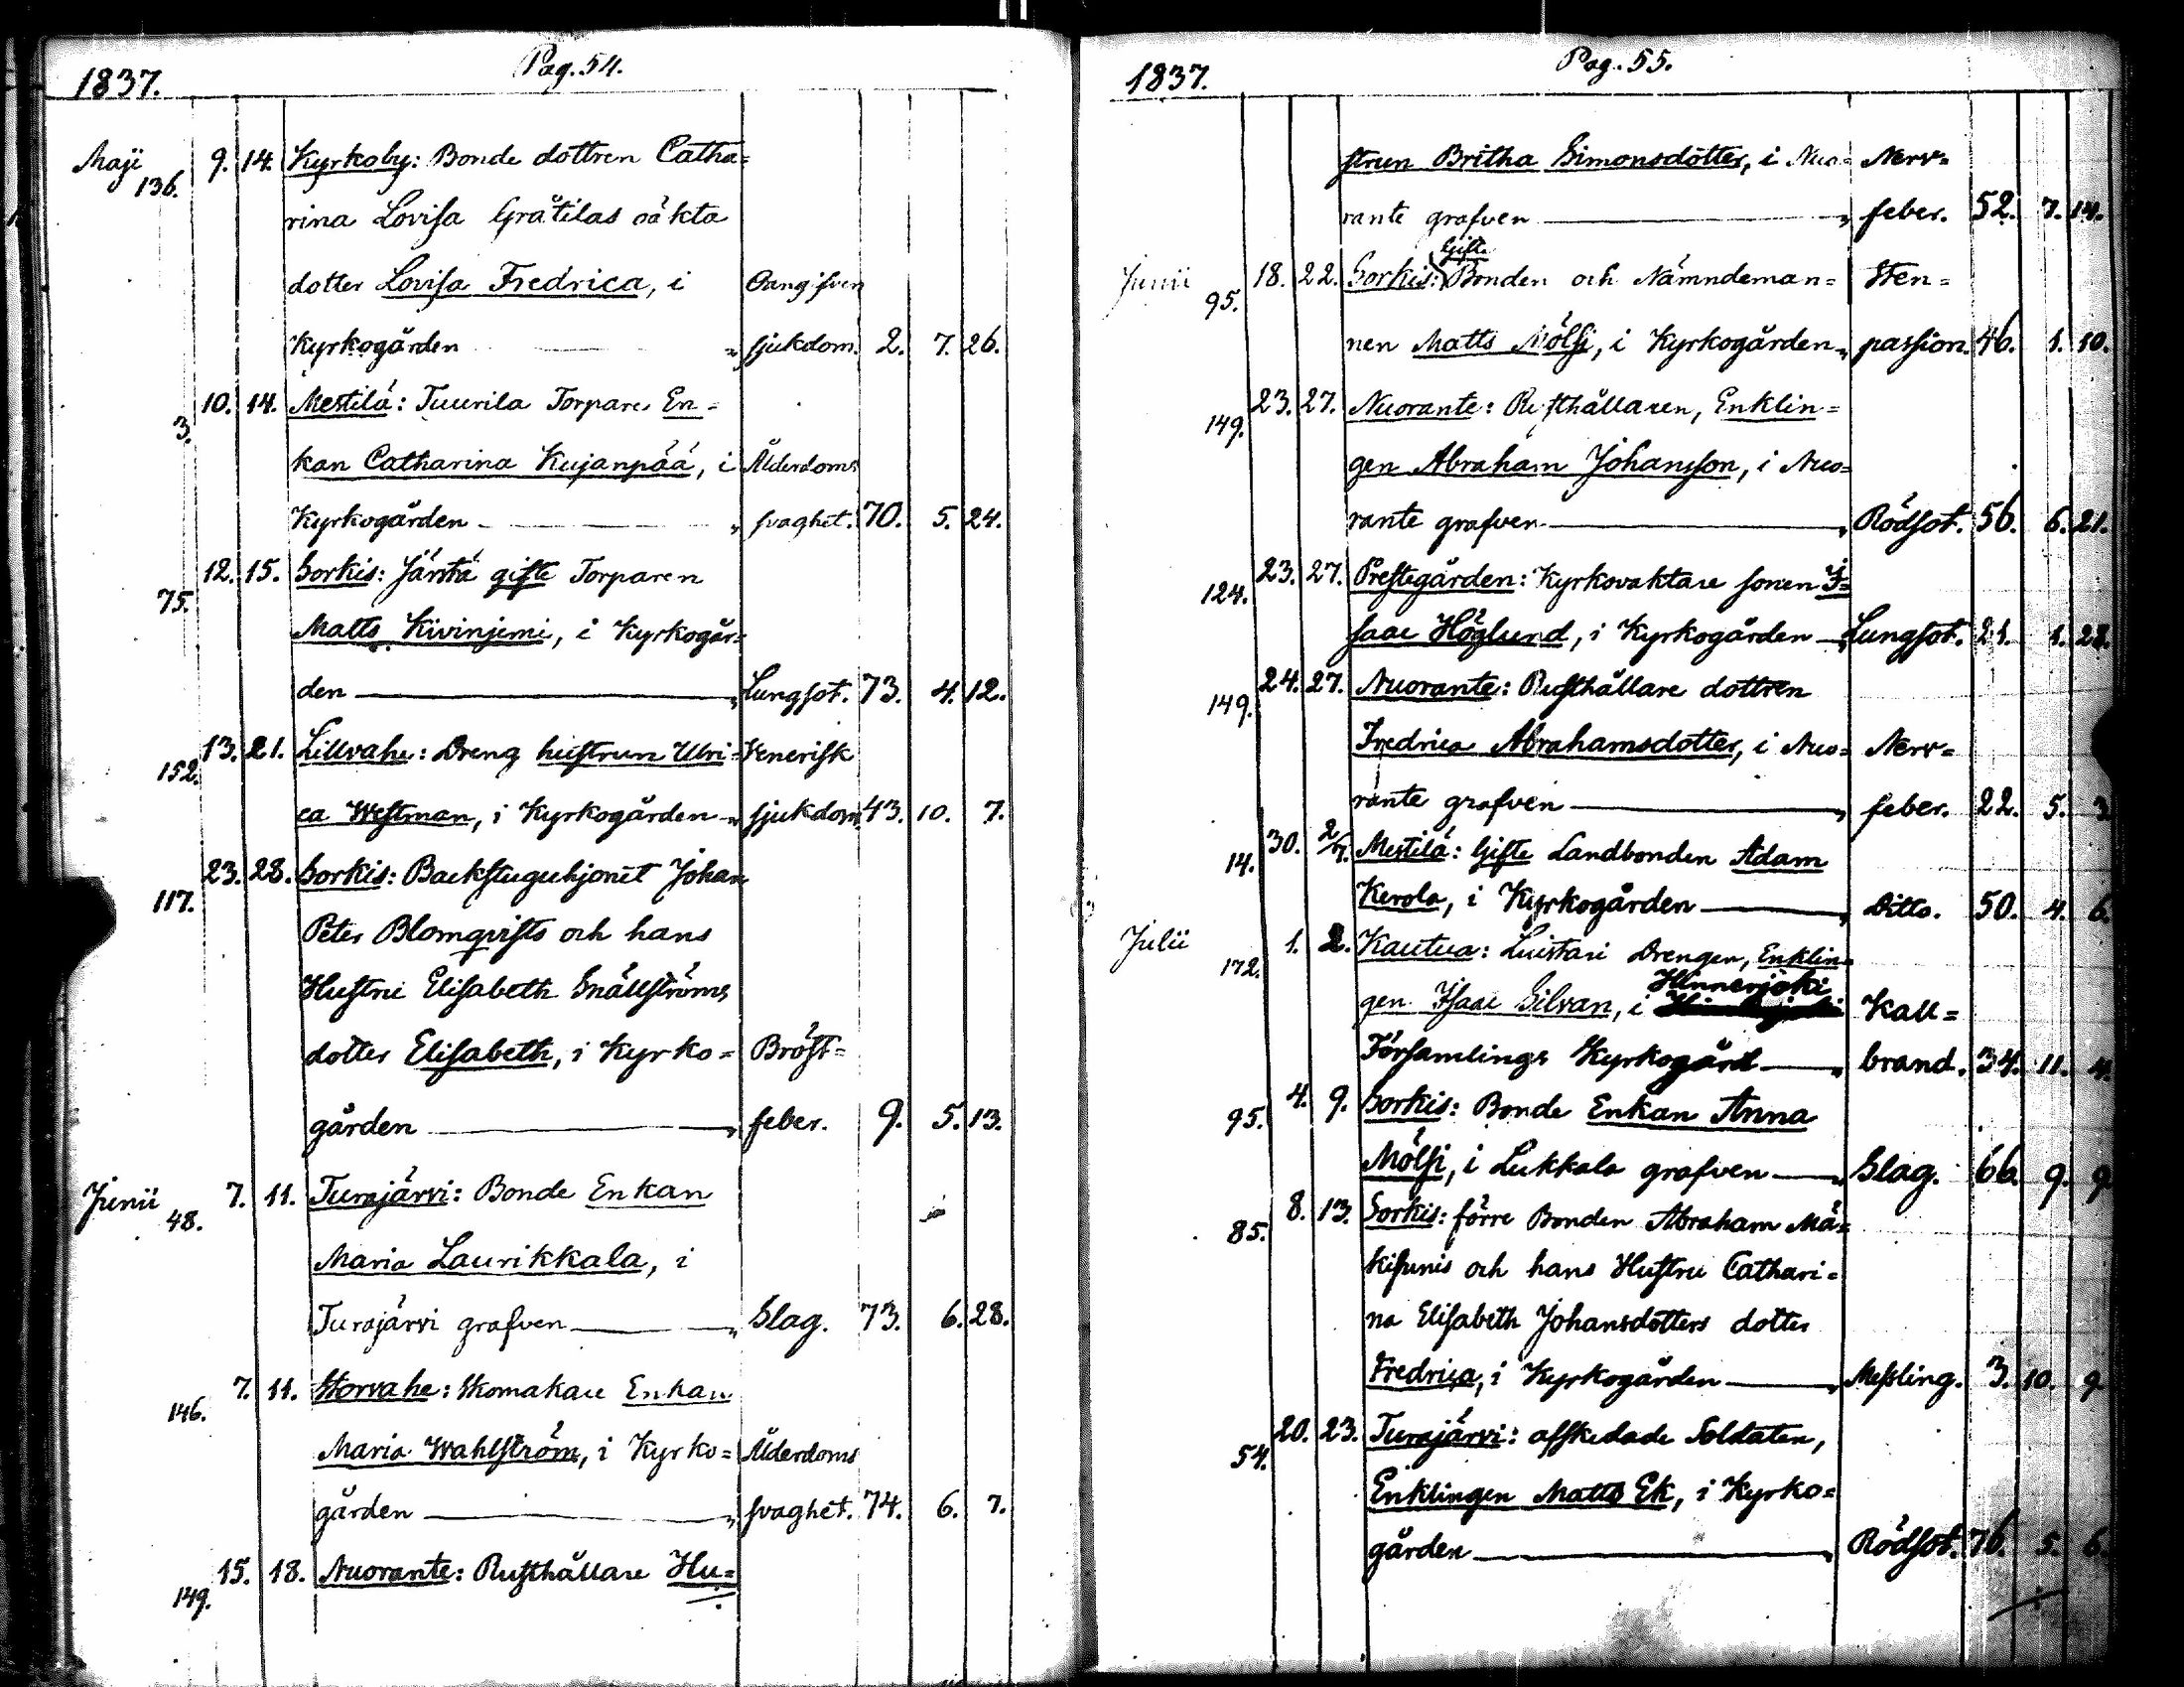 Pag. 54.
1837.
Maji 136. 9. 14. Kyrkoby: Bonde dottren Catha=
rina Lovisa Grätilas oäkta
dotter Lovisa Fredrica, i Oangifven
Kyrkogården „ sjukdom. 2. 7. 26.
3. 10. 14. Mestilä: Tuurila Torpare En=
kan Catharina Kujanpää, i Ålderdoms
Kyrkogården „ svaghet. 70. 5. 24.
75. 12. 15. Sorkis: Järstä gifte Torparen
Matts Kivinjemi, i Kyrkogår=
den „ Lungsot. 73. 4. 12.
152. 13. 21. Lillvahe: Dreng hustrun Ulri= Venerisk
ca Westman, i Kyrkogården „ sjukdom. 43. 10. 7.
117. 23. 28. Sorkis: Backstuguhjonet Johan
Peter Blomqvists och hans
Hustru Elisabeth Snällströms
dotter Elisabeth, i Kyrko= Bröst=
gården „ feber. 9. 5. 13.
Junii 48. 7. 11. Turajärvi: Bonde Enkan
Maria Laurikkala, i
Turajärvi grafven „ Slag. 73. 6. 28.
146. 7. 11. Storvahe: Skomakare Enkan
Maria Wahlström, i Kyrko= Ålderdoms
gården „ svaghet. 74. 6. 7.
149. 15. 18. Nuorante: Rusthållare Hu=
Pag. 55.
1837.
strun Britha Simonsdotter, i Nuo= Nerv=
rante grafven „ feber. 52. 7. 14.
Gifte
Junii 95. 18. 22. Sorkis: Bonden och Nämndeman= Sten=
nen Matts Mölsi, i Kyrkogården „ passion. 46. 1. 10.
149. 23. 27. Nuorante: Rusthållaren, Enklin=
gen Abraham Johansson, i Nuo=
rante grafven „ Rödsot. 56. 6. 21.
124. 23. 27. Prestegården: Kyrkovaktare sonen I=
saac Höglund, i Kyrkogården „ Lungsot. 21. 1. 28.
149. 24. 27. Nuorante: Rusthållare dottren
Fredrica Abrahamsdotter, i Nuo= Nerv=
rante grafven „ feber. 22. 5. 3.
14. 30. 2/7. Mestilä: Gifte Landbonden Adam
Kerola, i Kyrkogården „ Ditto. 50. 4. 6.
Julii 172. 1. 2. Kautua: Luistari Drengen, Enklin=
Hinnerjoki
gen Isaac Silvan, i Kall=
Församlings Kyrkogård „ brand. 34. 11. 4.
95. 4. 9. Sorkis: Bonde Enkan Anna
Mölsi, i Lukkala grafven „ Slag. 66. 9. 9.
85. 8. 13. Sorkis: förre Bonden Abraham Mä=
kisunis och hans Hustru Cathari=
na Elisabeth Johansdotters dotter
Fredrica, i Kyrkogården „ Messling. 3. 10. 9.
54. 20. 23. Turajärvi: afskedade Soldaten,
Enklingen Matts Ek, i Kyrko=
gården „ Rödsot. 76. 5. 6.